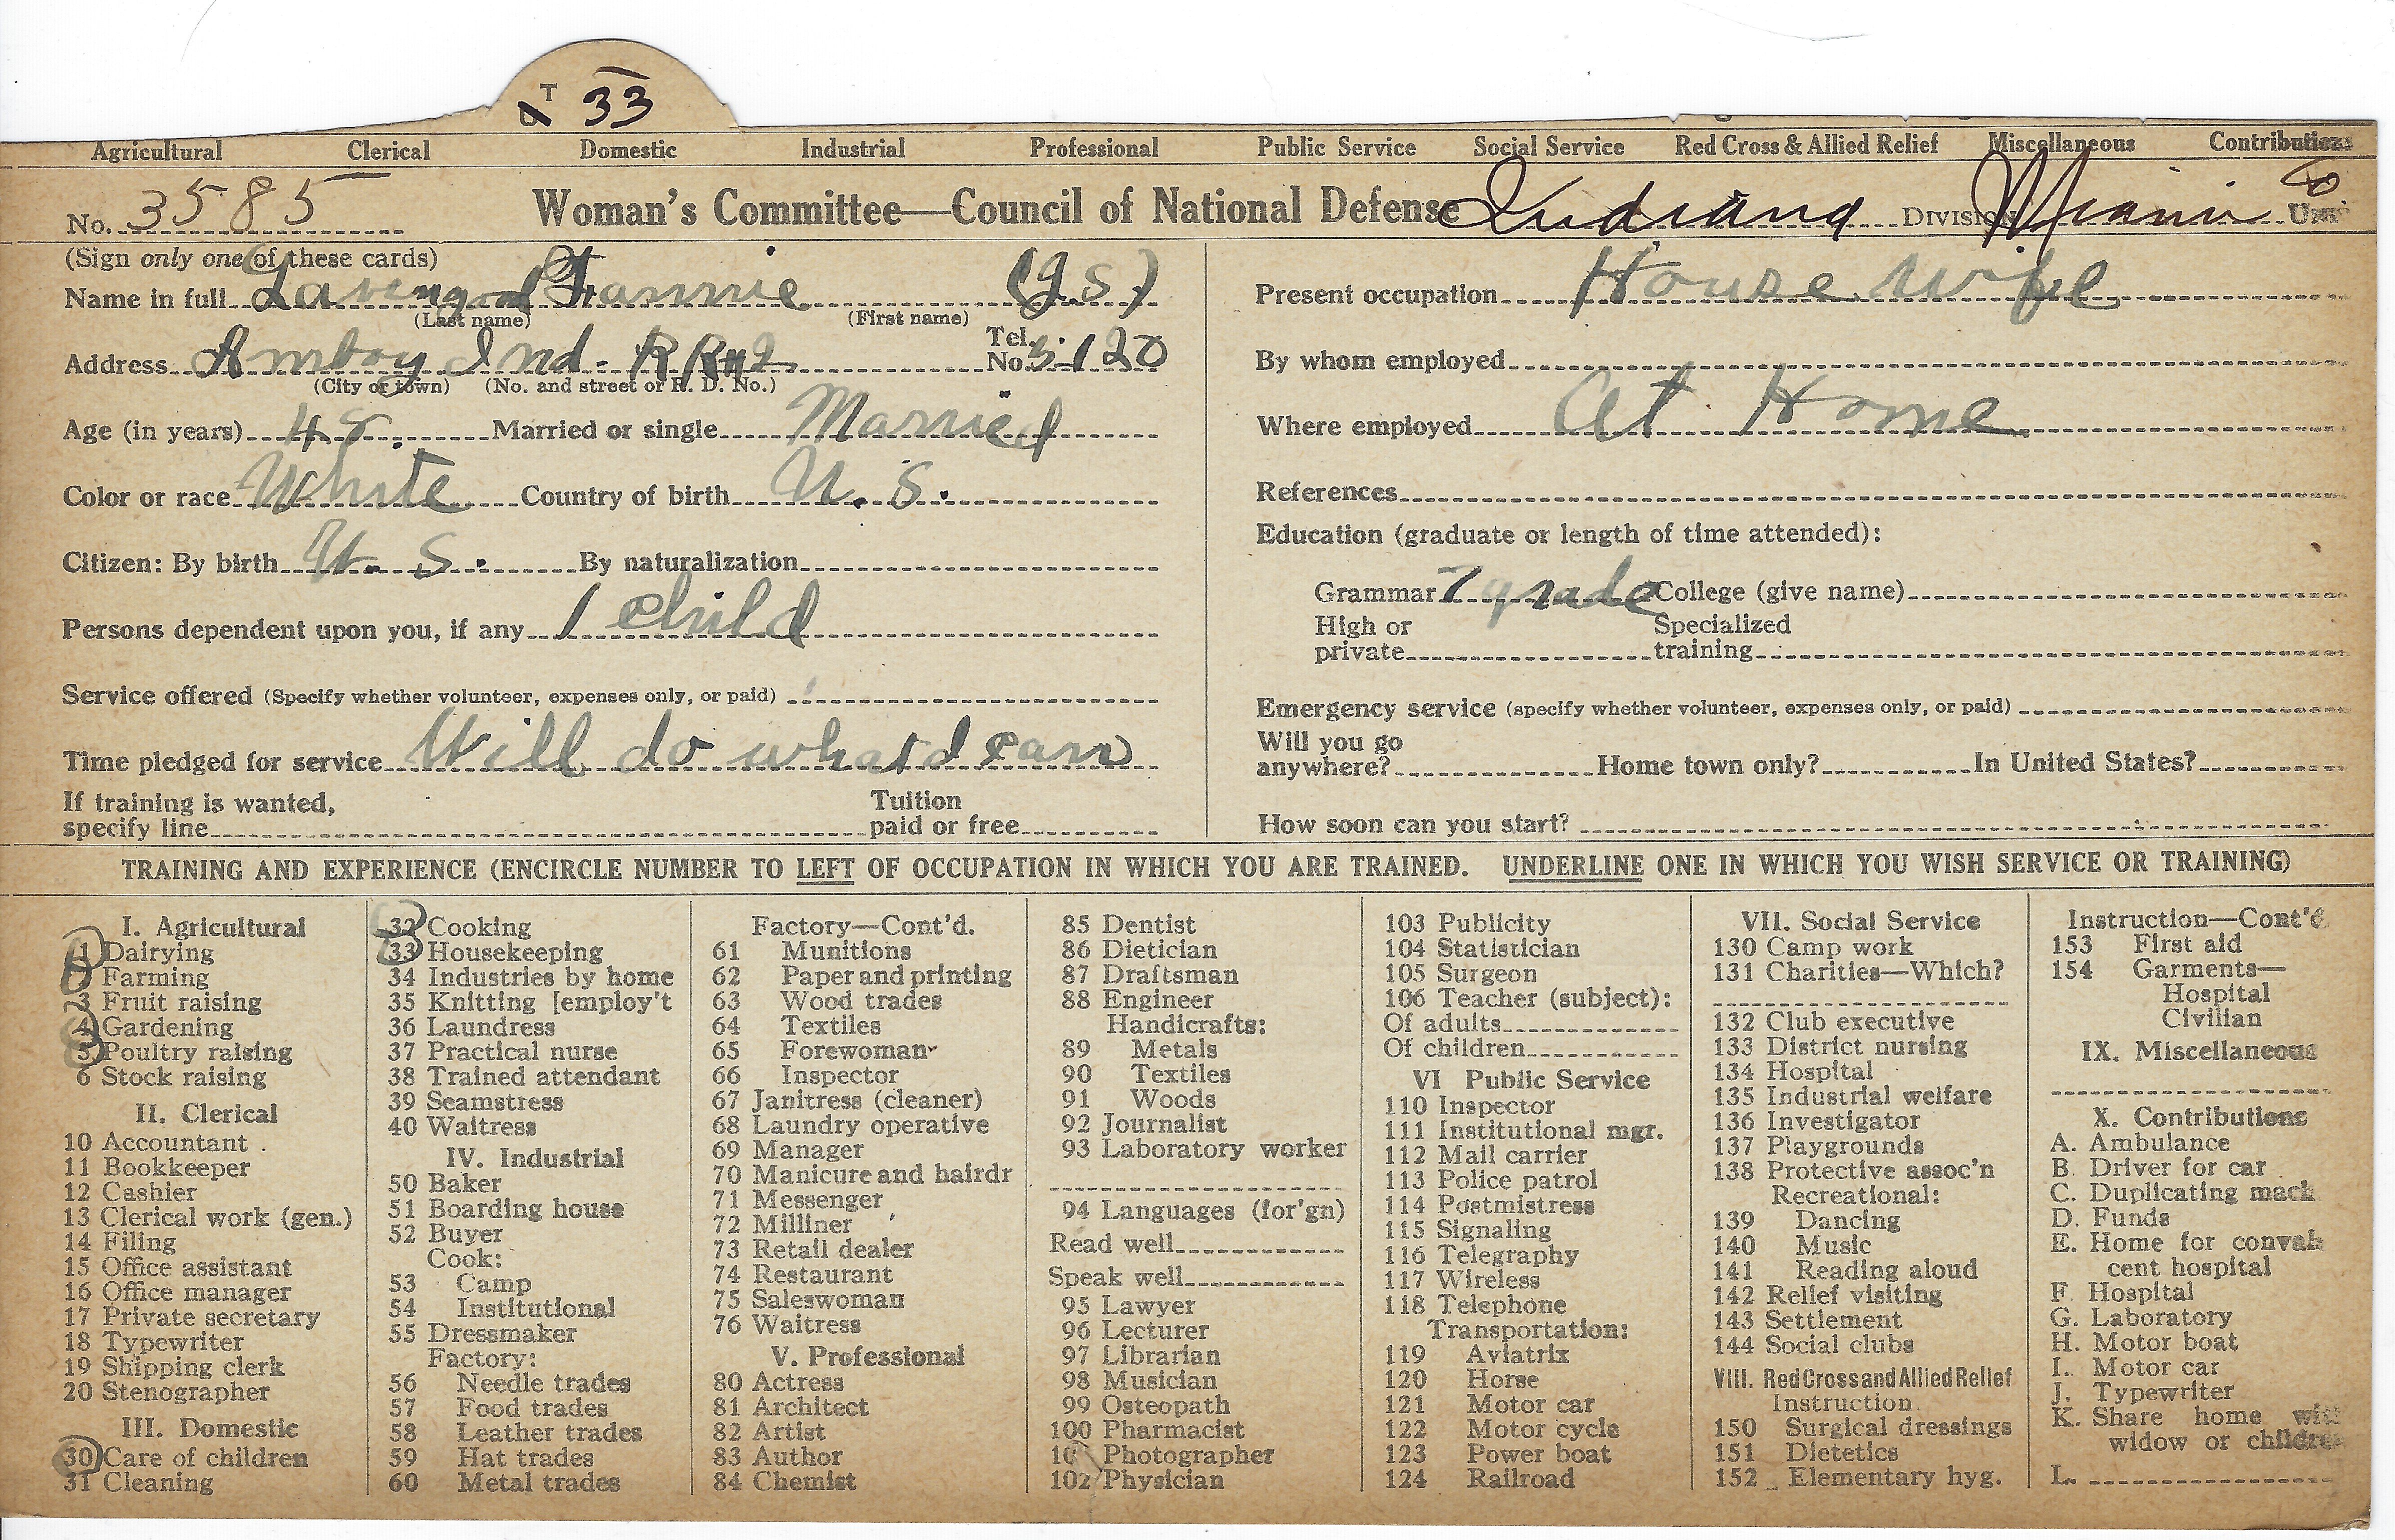 T 33
Agricultural Clerical Domestic Industrial Professional Public Service Social Service Red Cross & Allied Relief Miscellaneous Contributions
No. 3585 Woman's Committee—Council of National Defense Indiana Division Miami Unit
(Sign only one of these cards)
Name in full Lavengood Fannie (J.S)
(Last name) (First name)
Address Amboy Ind. RR#2 Tel. No. 5-120
(City or town) (No. and street or R. D. No.)
Age (in years) 48. Married or single Married
Color or race White Country of birth U.S.
Citizen: By birth U.S. By naturalization
Persons dependent upon you, if any 1 child
Service offered (Specify whether volunteer, expenses only, or paid)
Time pledged for service Will do what I can
If training is wanted,
specify line
Tuition
paid or free
Present occupation House wife
By whom employed
Where employed At Home
References
Education (graduate or length of time attended):
Grammar 7 grade College (give name)
High or
private
Specialized
training
Emergency service (specify whether volunteer, expenses only, or paid)
Will you go
anywhere? Home town only? In United States?
How soon can you start?
TRAINING AND EXPERIENCE (ENCIRCLE NUMBER TO LEFT OF OCCUPATION IN WHICH YOU ARE TRAINED. UNDERLINE ONE IN WHICH YOU WISH SERVICE OR TRAINING)
I. Agricultural
1 Dairying
Farming
3 Fruit raising
4 Gardening
5 Poultry raising
6 Stock raising
II. Clerical
10 Accountant
11 Bookkeeper
12 Cashier
13 Clerical work (gen.)
14 Filing
15 Office assistant
16 Office manager
17 Private secretary
18 Typewriter
19 Shipping clerk
20 Stenographer
III. Domestic
30 Care of children
31 Cleaning
32 Cooking
33 Housekeeping
34 Industries by home
35 Knitting [employ't
36 Laundress
37 Practical nurse
38 Trained attendant
39 Seamstress
40 Waitress
IV. Industrial
50 Baker
51 Boarding house
52 Buyer
Cook:
53 Camp
54 Institutional
55 Dressmaker
Factory:
56 Needle trades
57 Food trades
58 Leather trades
59 Hat trades
60 Metal trades
Factory—Cont'd.
61 Munitions
62 Paper and printing
63 Wood trades
64 Textiles
65 Forewoman
66 Inspector
67 Janitress (cleaner)
68 Laundry operative
69 Manager
70 Manicure and hairdr
71 Messenger
72 Milliner
73 Retail dealer
74 Restaurant
75 Saleswoman
76 Waitress
V. Professional
80 Actress
81 Architect
82 Artist
83 Author
84 Chemist
85 Dentist
86 Dietician
87 Draftsman
88 Engineer
Handicrafts:
89 Metals
90 Textiles
91 Woods
92 Journalist
93 Laboratory worker
94 Languages (for'gn)
Read well
Speak well
95 Lawyer
96 Lecturer
97 Librarian
98 Musician
99 Osteopath
100 Pharmacist
Photographer
102 Physician
103 Publicity
104 Statistician
105 Surgeon
106 Teacher (subject):
Of adults
Of children
VI Public Service
110 Inspector
111 Institutional mgr.
112 Mail carrier
113 Police patrol
114 Postmistress
115 Signaling
116 Telegraphy
117 Wireless
118 Telephone
Transportation:
119 Aviatrix
120 Horse
121 Motor car
122 Motor cycle
123 Power boat
124 Railroad
VII. Social Service
130 Camp work
131 Charities—Which?
132 Club executive
133 District nursing
134 Hospital
135 Industrial welfare
136 Investigator
137 Playgrounds
138 Protective assoc'n
Recreational:
139 Dancing
140 Music
141 Reading aloud
142 Relief visiting
143 Settlement
144 Social clubs
VIII. Red Cross and Allied Relief
Instruction
150 Surgical dressings
151 Dietetics
152 Elementary hyg.
Instruction—Cont'd
153 First aid
154 Garments—
Hospital
Civilian
IX. Miscellaneous
X. Contributions
A. Ambulance
B. Driver for car
C. Duplicating mach
D. Funds
E. Home for convales
cent hospital
F. Hospital
G. Laboratory
H. Motor boat
I. Motor car
J. Typewriter
K. Share home with
widow or children
L.